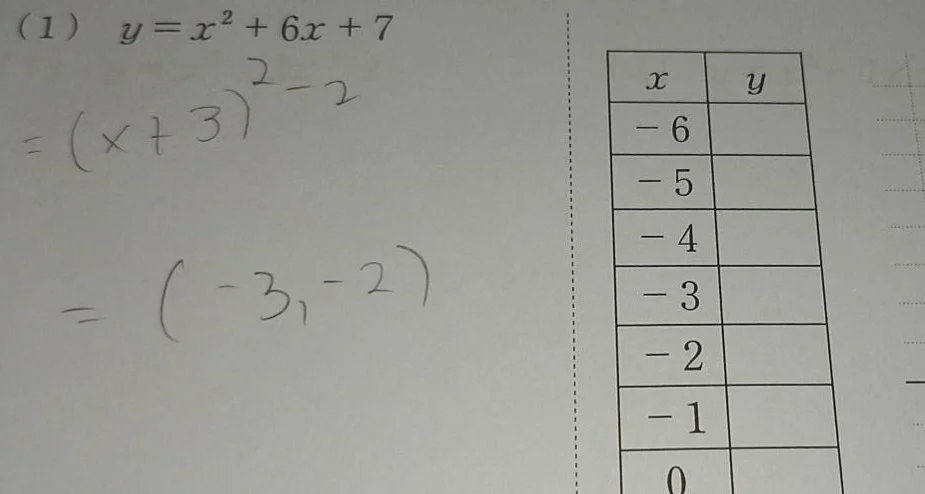 (1) y = x² + 6x + 7
= (x + 3)² - 2
= (-3, -2)
x y
-6
-5
-4
-3
-2
-1
0